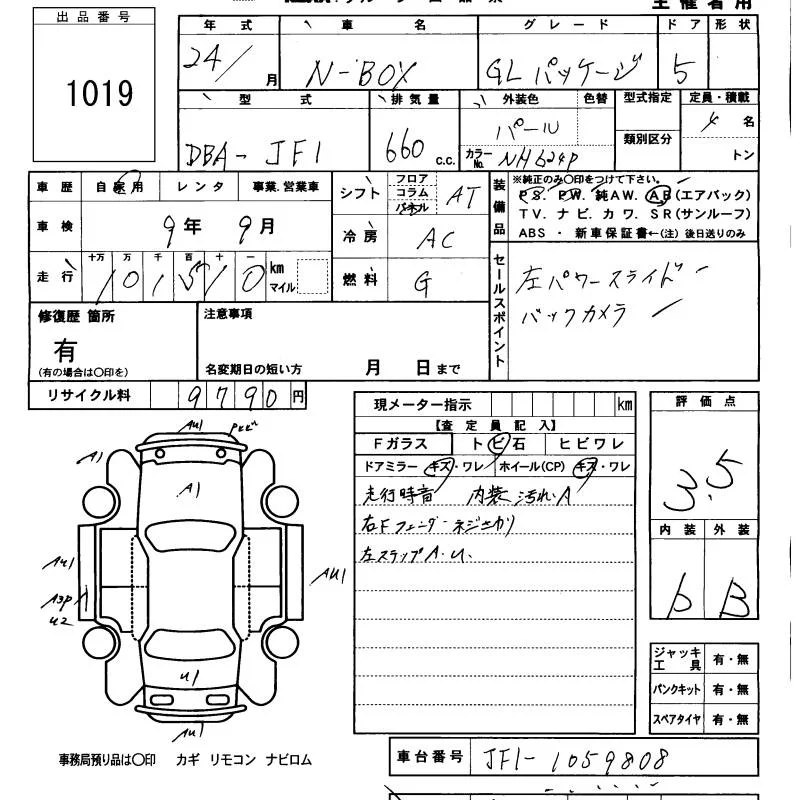 主催者用
出品番号
1019
年式 車名 グレード ドア 形状
24/ 月 N-BOX GLパッケージ 5
型式 排気量 外装色 色替 型式指定 定員・積載
DBA-JF1 660 c.c. パール カラーNo. NH624P 類別区分 4 名
トン
車歴 自家用 レンタ 事業.営業車
車検 9年 9月
走行 十万 万 千 百 十 一
101510 km マイル
シフト フロア コラム パネル AT
冷房 AC
燃料 G
装備品 ※純正のみ〇印をつけて下さい。
PS. PW. 純AW. AB(エアバック)
TV. ナビ. カワ. SR(サンルーフ)
ABS ・ 新車保証書←(注) 後日送りのみ
セールスポイント 左パワースライド
バックカメラ
修復歴 箇所
有
(有の場合は〇印を)
注意事項
名変期日の短い方 月 日まで
リサイクル料 9790円
現メーター指示 km
【査定員記入】
Fガラス トビ石 ヒビワレ
ドアミラー キズ・ワレ ホイール(CP) キズ・ワレ
走行時音 内装 汚れ.A
右Fフェンダーネジさがり
左ステップA.u.
評価点
3.5
内装 外装
b B
ジャッキ工具 有・無
パンクキット 有・無
スペアタイヤ 有・無
AU1
A1
A1
AU1
A3P
U2
AU1
U1
AU1
事務局預り品は〇印 カギ リモコン ナビロム
車台番号 JF1-1059808